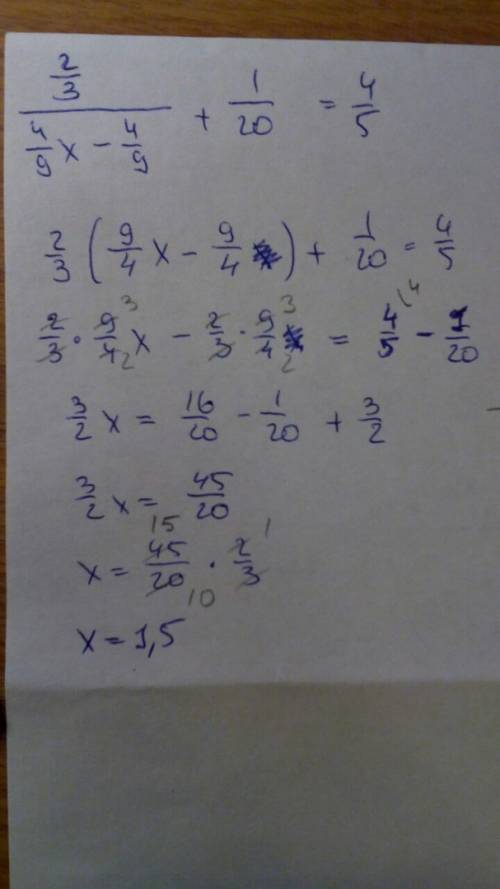 2/3 / (4/9 x - 4/9) + 1/20 = 4/5
2/3 (9/4 x - 9/4) + 1/20 = 4/5
2/3 · 9/4 x - 2/3 · 9/4 = 4/5 - 1/20
3/2 x = 16/20 - 1/20 + 3/2
3/2 x = 45/20
x = 45/20 · 2/3
x = 1,5